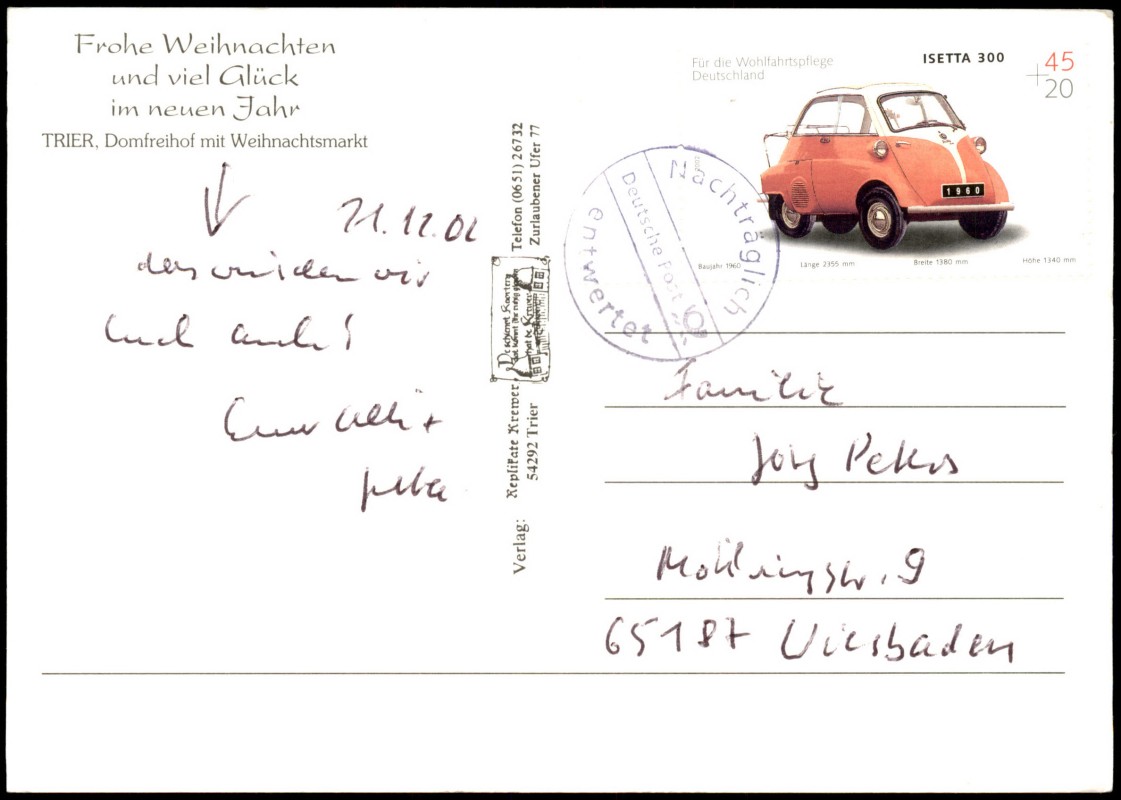 Frohe Weihnachten
und viel Glück
im neuen Jahr
TRIER, Domfreihof mit Weihnachtsmarkt
21.12.02
das wünschen wir
Euch auch!
Euer Ulli +
Verlag: Replikate Kremer, Telefon (0651) 26732
54292 Trier Zurlaubener Ufer 77
Für die Wohlfahrtspflege
Deutschland
ISETTA 300
45
+20
1960
Baujahr 1960 Länge 2355 mm Breite 1380 mm Höhe 1340 mm
Nachträglich
Deutsche Post
entwertet
Familie
Jörg
9
65187 Wiesbaden